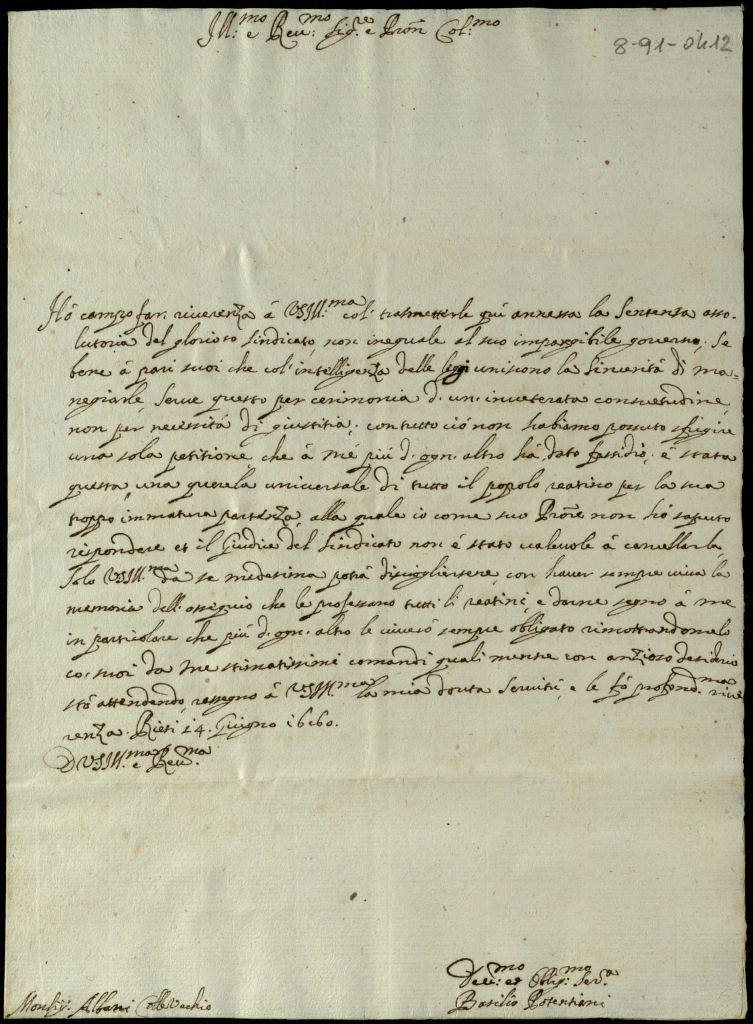 Ill:mo e Reu:mo Sig:re e Pron Col:mo
8-91-0412
Hò campo far riuerenza à VSIll:ma col' trasmetterle quì annessa la Sentenza asso-
lutoria del glorioso sindicato, non ineguale al suo impareggibile gouerno; Se
bene à pari suoi che col' intelligenza delle leggi uniscono la sincerità di ma-
negiarle, Serue questo per cerimonia d'un' inueterata consuetudine,
non per necessità di giustitia; con tutto ciò non habbiamo possuto sfugire
una sola petitione, che à mè più d'ogn' altro hà dato fastidio; è stata
questa una querela uniuersale di tutto il popolo reatino per la sua
troppo immatura partenza, alla quale io come suo Prore non hò saputo
rispondere et il Giudice del Sindicato non è stato valeuole à cancellarla,
Solo VSIll:ma da se medesima potrà disciogliersene, con hauer sempre viua la
memoria dell' ossequio che le professano tutti li reatini, e darne segno à me
in particolare che più d'ogn' altro le uiuerò sempre obligato rimostrandomelo
co' suoi da me stimatissimi comandi quali mentre con anzioso desiderio
stò attendendo, rassegno à VSIll:ma la mia douta Seruitù, e le fò profond:ma riue
renza. Rieti 14. Giugno 1660.
D VSIll:ma e Reu:ma
Deu:mo et Oblig:mo Ser:e
Basilio Potentiani
Monsig:r Albani Colleuechio